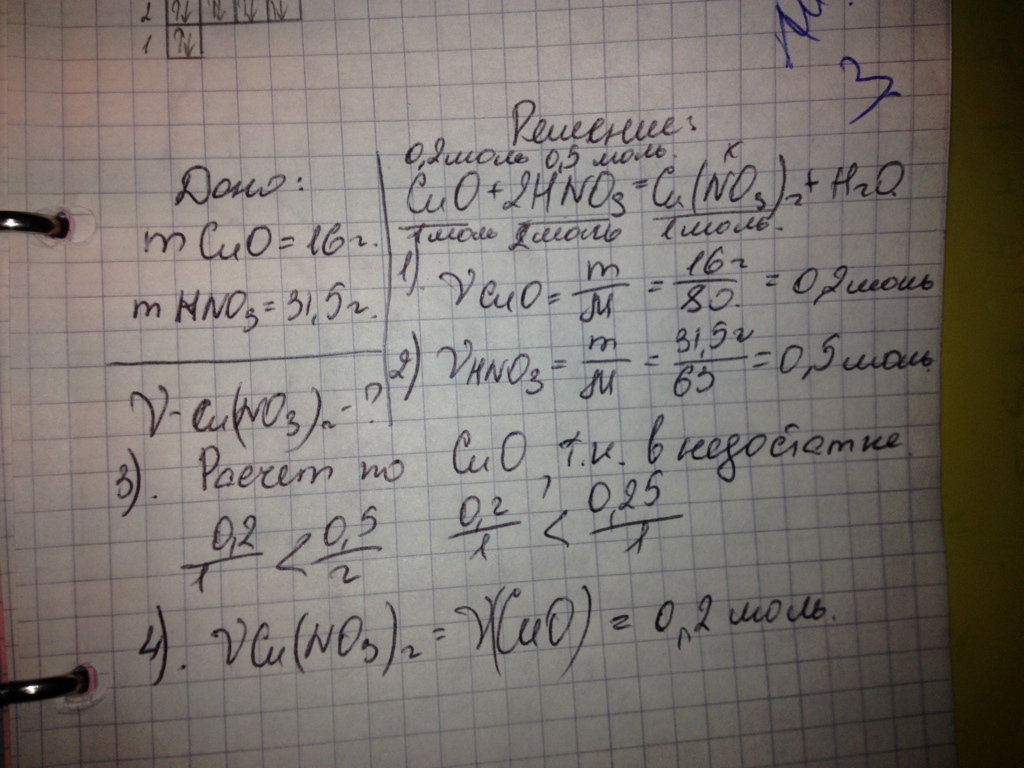 2
1
3
Решение:
Дано:
m CuO = 16 г.
m HNO₃ = 31,5 г.
ν - Cu(NO₃)₂ - ?
0,2 моль 0,5 моль. x
CuO + 2HNO₃ = Cu(NO₃)₂ + H₂O
1 моль 2 моль 1 моль.
1). ν CuO = m/M = 16 г/80 = 0,2 моль
2) ν HNO₃ = m/M = 31,5 г/63 = 0,5 моль
3). Расчет по CuO, т.к. в недостатке.
0,2/1 < 0,5/2 0,2/1 < 0,25/1
4). ν Cu(NO₃)₂ = ν(CuO) = 0,2 моль.